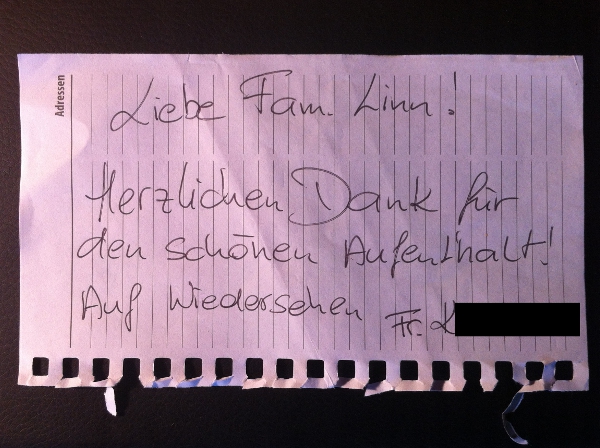 Adressen
Liebe Fam. Linn!
Herzlichen Dank für
den schönen Aufenthalt!
Auf Wiedersehen
Fr.